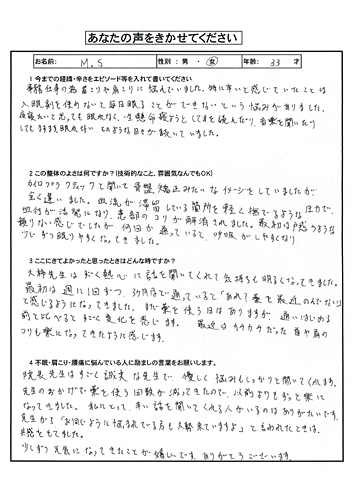 あなたの声をきかせてください
お名前: M.S 性別: 男・女 年齢: 33 才
1 今までの経緯・辛さをエピソード等を入れて書いてください
事務仕事の為首こりや肩こりに悩んでいました。特に辛いと感じていたことは
入眠剤を使わないと毎日眠ることができないという悩みがありました。
夜寝たいと思っても眠れなく、生懸命寝ようとして本を読んだり、音楽を聞いたり
してもますます眠れない、もどかしい日々が続いていました。
2 この整体のよさは何ですか?(技術的なこと、雰囲気なんでもOK)
カイロプラクティックと聞いて骨盤矯正みたいなイメージをしていましたが
全く違いました。血流が滞留している箇所を軽く撫でるような圧力で、
血行が活発になり、患部のコリが解消されました。最初は戸惑うような
頼りない感じでしたが何回か通っていると、呼吸がしやすくなり
少しずつ眠りやすくなってきました。
3 ここにきてよかったと思ったときはどんな時ですか?
大柿先生はすごく熱心に話を聞いてくれて気持ちも明るくなってきました。
最初は週に1回ずつ、3ヶ月ほど通っていると「あれ?薬を最近のんでない」
と感じるようになってきました。まだ薬を使う日はありますが、通いはじめる
前と比べるとすごく変化を感じます。最近はカチカチだった首や肩の
コリも楽になってきたように感じます。
4 不眠・肩こり・腰痛に悩んでいる人に励ましの言葉をお願いします。
院長先生はすごく誠実な先生で優しく悩みもしっかりと聞いてくれます。
先生のおかげで薬を使う回数が減ってきたので、以前よりもずっと楽に
なってきました。私にとって、辛い話を聞いてくれる人がいるのはありがたいです。
先生から「お同じように悩まれている方も大勢来ていますよ」と言われたときは、
共感をもてました。
少しずつ元気になってきたことが嬉しいです。ありがとうございます。